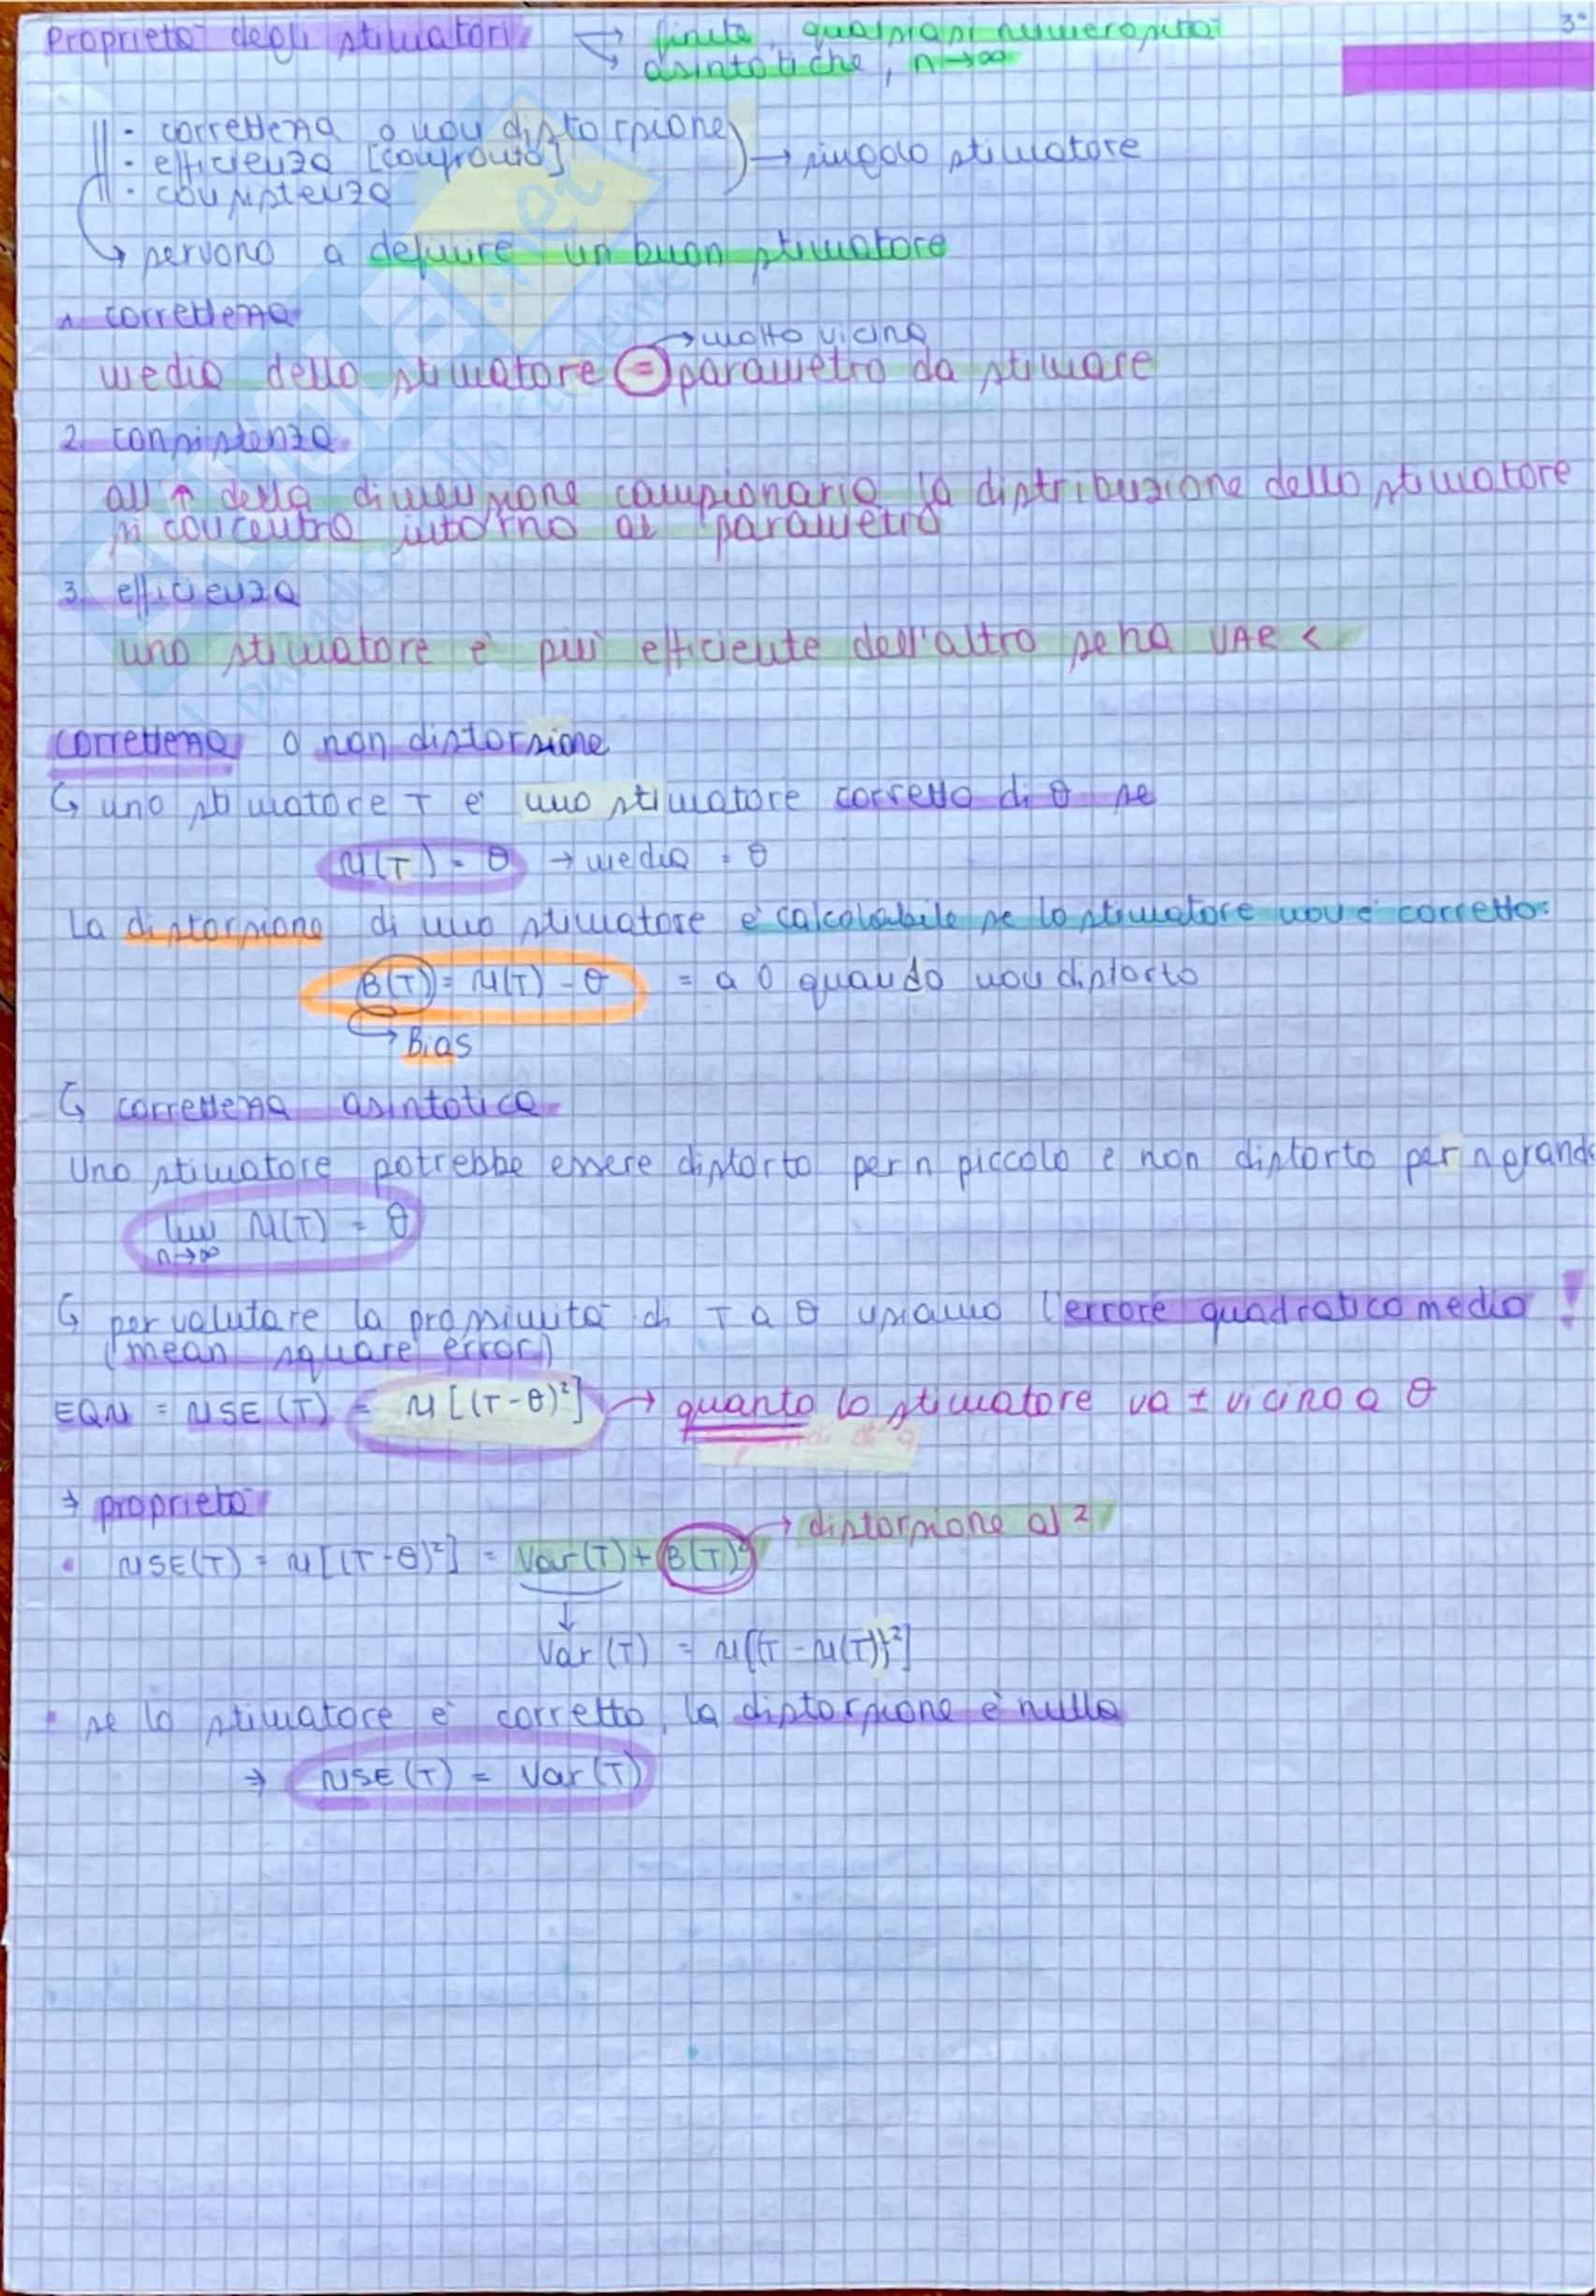 Proprietà degli stimatori → finite, qualsiasi numerosità 3°
→ asintotiche, n→∞
· correttezza o non distorsione
· efficienza [confronto] → singolo stimatore
· consistenza
↳ servono a definire un buon stimatore
1 correttezza
→ molto vicina
media dello stimatore = parametro da stimare
2. consistenza
all ↑ della dimensione campionaria la distribuzione dello stimatore
si concentra intorno al parametro
3. efficienza
uno stimatore è più efficiente dell'altro se ha VAR <
correttezza o non distorsione
↳ uno stimatore T è uno stimatore corretto di θ se
M(T) = θ → media = θ
La distorsione di uno stimatore è calcolabile se lo stimatore non è corretto:
B(T) = M(T) - θ = a 0 quando non distorto
→ Bias
↳ correttezza asintotica
Uno stimatore potrebbe essere distorto per n piccolo e non distorto per n grande
lim M(T) = θ
n→∞
↳ per valutare la prossimità di T a θ usiamo l'errore quadratico medio !
(mean square error)
EQM = MSE (T) = M [(T-θ)²] → quanto lo stimatore va ± vicino a θ
→ proprietà
• MSE(T) = M [(T-θ)²] = Var(T) + B(T)² → distorsione al ²
↓
Var (T) = M[(T - M(T))²]
• se lo stimatore è corretto, la distorsione è nulla
→ MSE (T) = Var (T)
SKUOLA.net